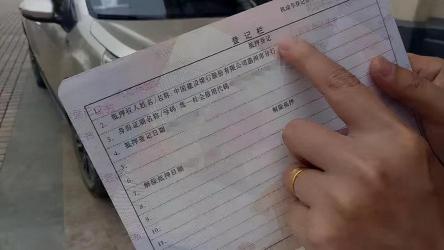 机动车登记
登记栏
1. 抵押登记
2. 抵押权人姓名/名称 中国建设银行股份有限公司
3. 身份证明名称/号码 统一社会信用代码
4. 抵押登记日期
5.
6. 解除抵押
7. 解除抵押日期
8.
9.
10.
11.